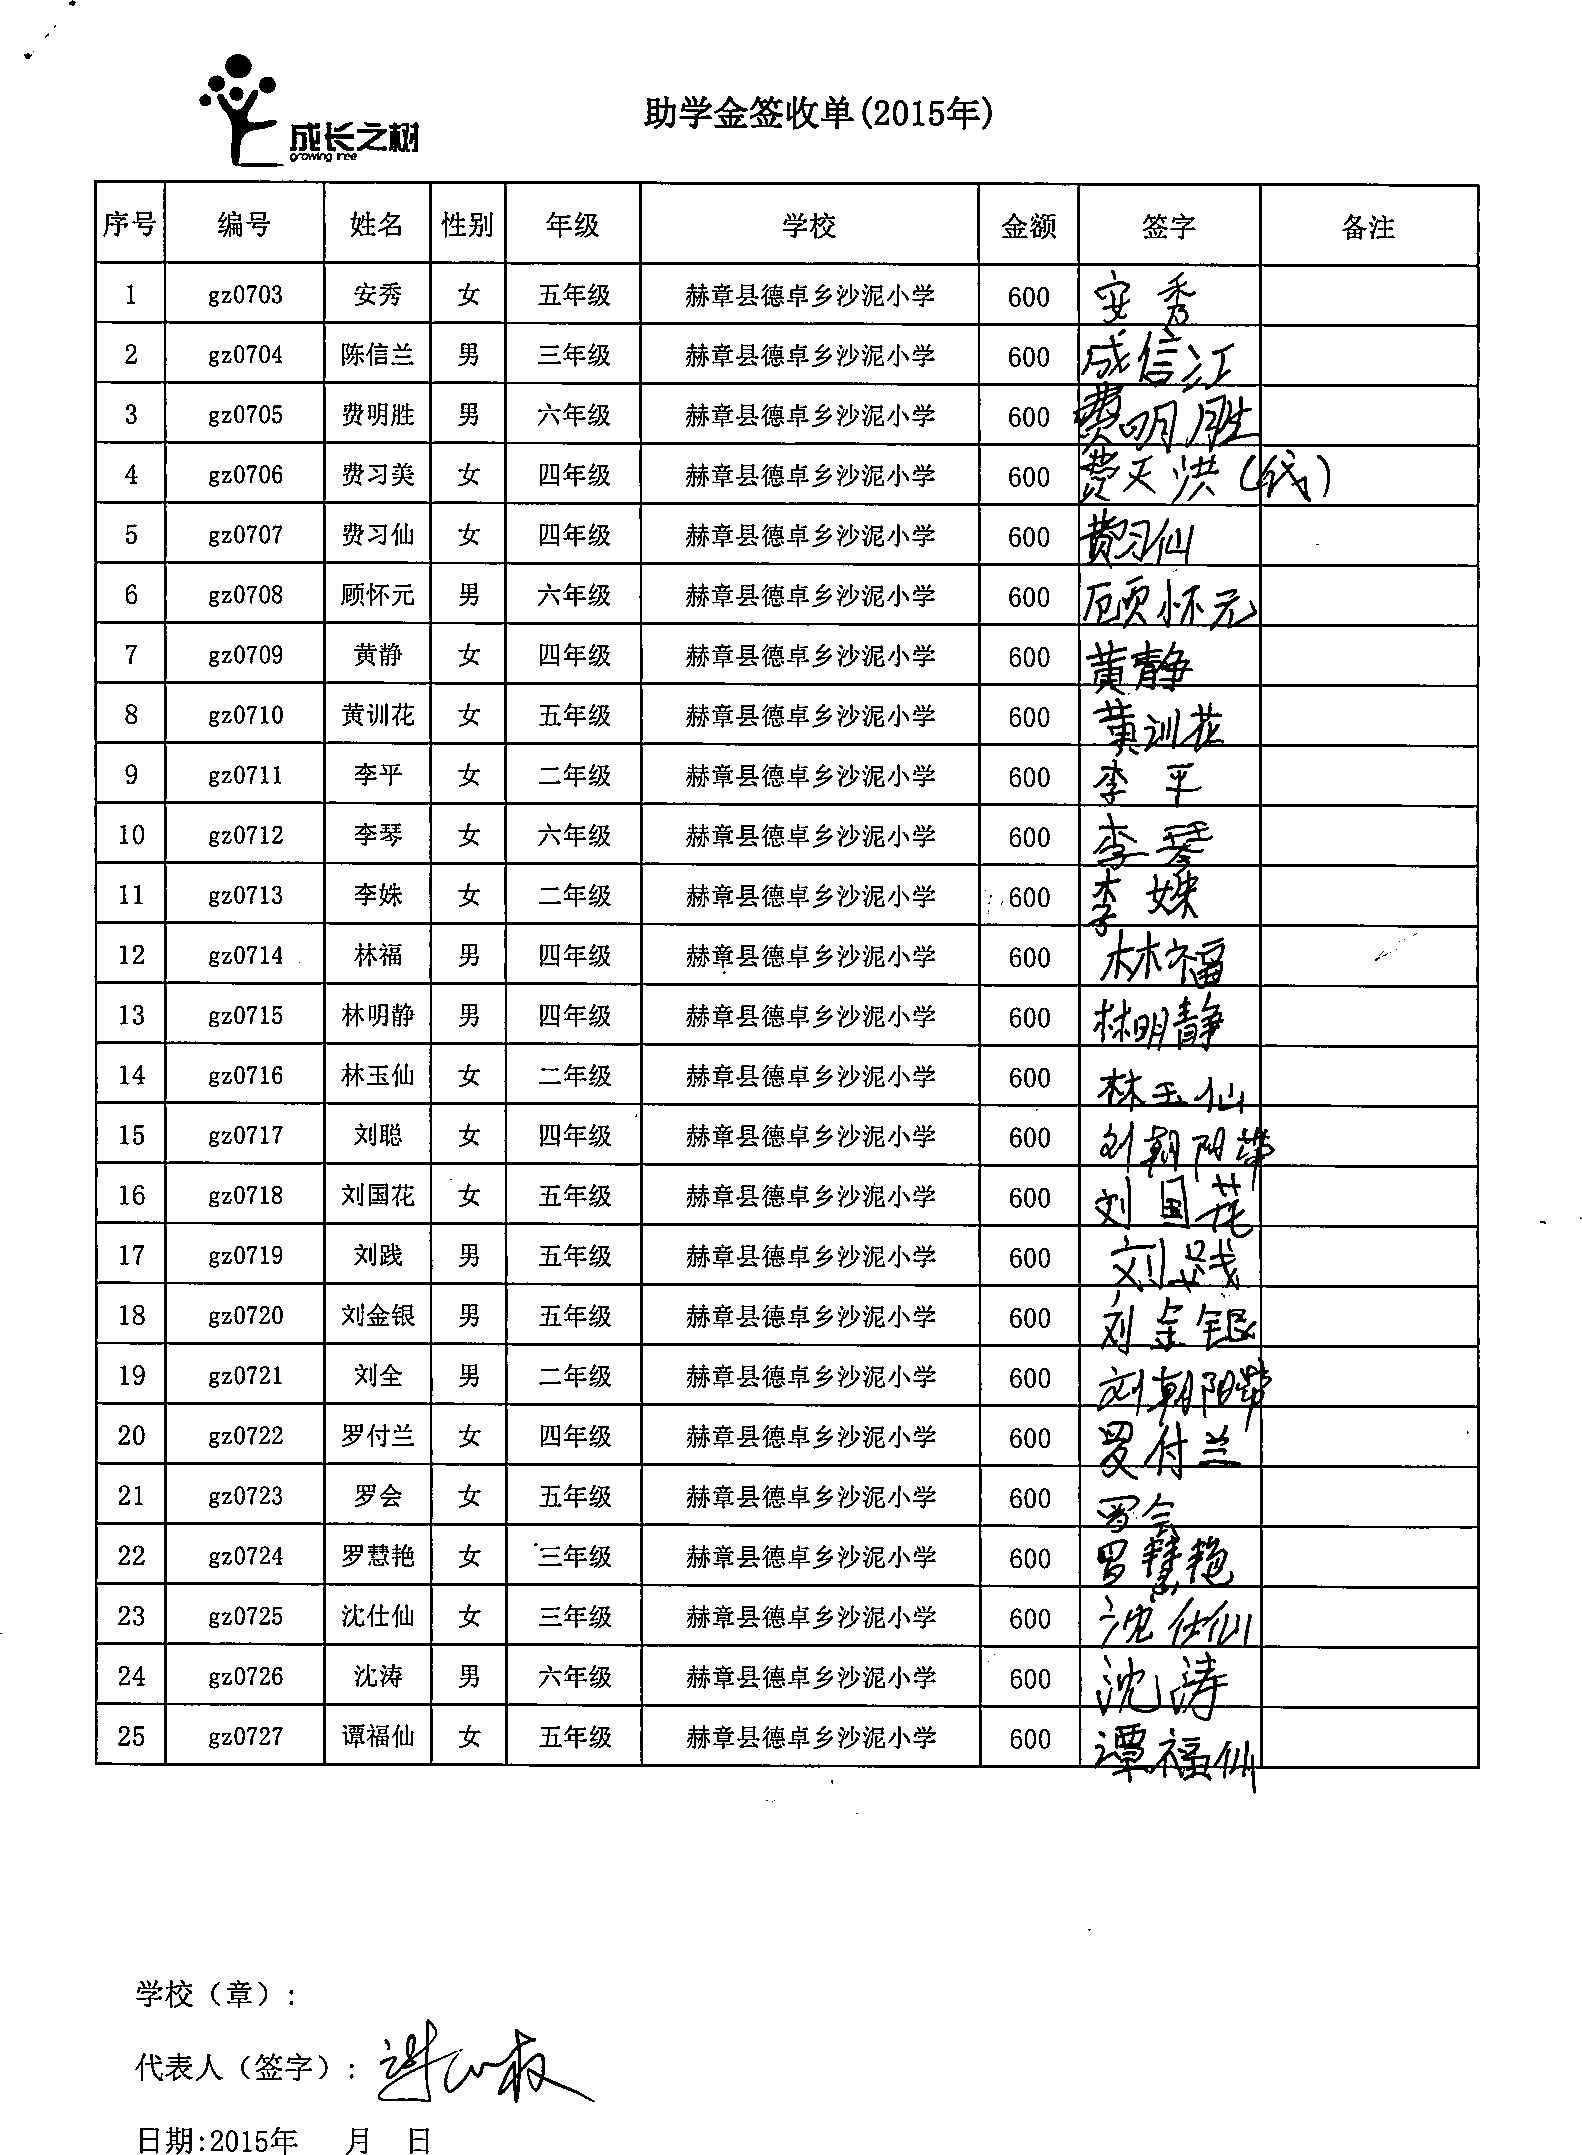 成长之树
growing tree
助学金签收单(2015年)
序号 编号 姓名 性别 年级 学校 金额 签字 备注
1 gz0703 安秀 女 五年级 赫章县德卓乡沙泥小学 600 安秀
2 gz0704 陈信兰 男 三年级 赫章县德卓乡沙泥小学 600 成信江
3 gz0705 费明胜 男 六年级 赫章县德卓乡沙泥小学 600 费明胜
4 gz0706 费习美 女 四年级 赫章县德卓乡沙泥小学 600 费天洪
5 gz0707 费习仙 女 四年级 赫章县德卓乡沙泥小学 600 费习仙
6 gz0708 顾怀元 男 六年级 赫章县德卓乡沙泥小学 600 顾怀元
7 gz0709 黄静 女 四年级 赫章县德卓乡沙泥小学 600 黄静
8 gz0710 黄训花 女 五年级 赫章县德卓乡沙泥小学 600 黄训花
9 gz0711 李平 女 二年级 赫章县德卓乡沙泥小学 600 李平
10 gz0712 李琴 女 六年级 赫章县德卓乡沙泥小学 600 李琴
11 gz0713 李姝 女 二年级 赫章县德卓乡沙泥小学 600 李姝
12 gz0714 林福 男 四年级 赫章县德卓乡沙泥小学 600 林福
13 gz0715 林明静 男 四年级 赫章县德卓乡沙泥小学 600 林明静
14 gz0716 林玉仙 女 二年级 赫章县德卓乡沙泥小学 600 林玉仙
15 gz0717 刘聪 女 四年级 赫章县德卓乡沙泥小学 600 刘朝阳带
16 gz0718 刘国花 女 五年级 赫章县德卓乡沙泥小学 600 刘国花
17 gz0719 刘践 男 五年级 赫章县德卓乡沙泥小学 600 刘践
18 gz0720 刘金银 男 五年级 赫章县德卓乡沙泥小学 600 刘金银
19 gz0721 刘全 男 二年级 赫章县德卓乡沙泥小学 600 刘朝阳带
20 gz0722 罗付兰 女 四年级 赫章县德卓乡沙泥小学 600 罗付兰
21 gz0723 罗会 女 五年级 赫章县德卓乡沙泥小学 600 罗会
22 gz0724 罗慧艳 女 三年级 赫章县德卓乡沙泥小学 600 罗慧艳
23 gz0725 沈仕仙 女 三年级 赫章县德卓乡沙泥小学 600 沈仕仙
24 gz0726 沈涛 男 六年级 赫章县德卓乡沙泥小学 600 沈涛
25 gz0727 谭福仙 女 五年级 赫章县德卓乡沙泥小学 600 谭福仙
学校（章）:
代表人（签字）:
日期:2015年 月 日